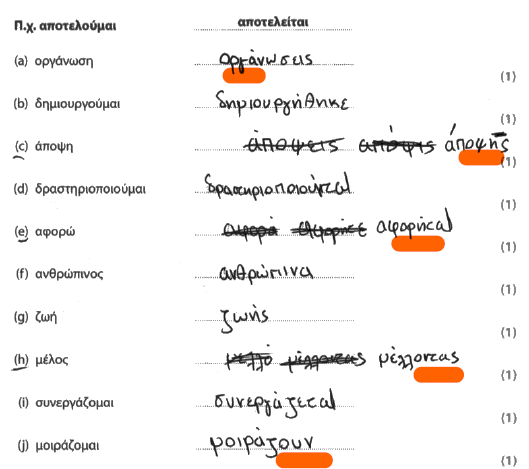 Π.χ. αποτελούμαι αποτελείται
(a) οργάνωση οργάνωσεις (1)
(b) δημιουργούμαι δημιουργήθηκε (1)
(c) άποψη άποψεις απόψις άποψης (1)
(d) δραστηριοποιούμαι δραστηριοποιούνται (1)
(e) αφορώ αφορά αφορήσε αφορήκαι (1)
(f) ανθρώπινος ανθρώπινα (1)
(g) ζωή ζωής (1)
(h) μέλος μελλό μέλλοντας μέλλοντας (1)
(i) συνεργάζομαι συνεργάζεται (1)
(j) μοιράζομαι μοιράζουν (1)